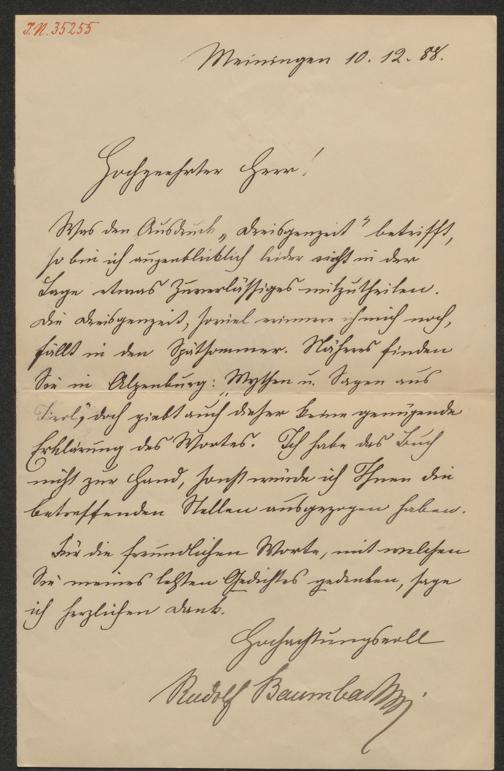 I.N. 35255
Meiningen 10. 12. 88.
Hochgeehrter Herr!
Was den Ausdruck „Dreisgenzeit" betrifft,
so bin ich augenblicklich leider nicht in der
Lage etwas Zuverlässiges mitzutheilen.
Die Dreisgenzeit, soviel erinnere ich mich noch,
fällt in den Spätsommer. Näheres finden
Sie in Alpenburg: „Mythen u. Sagen aus
Tirol", doch giebt auch dieser keine genügende
Erklärung des Wortes. Ich habe das Buch
nicht zur Hand, sonst würde ich Ihnen die
betreffenden Stellen ausgezogen haben.
Für die freundlichen Worte, mit welchen
Sie meines letzten Gedichtes gedenken, sage
ich herzlichen Dank.
Hochachtungsvoll
Rudolf Baumbach